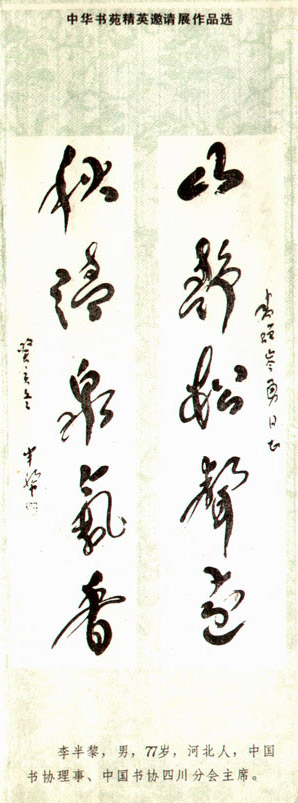 中华书苑精英邀请展作品选
山靜松聲遠
秋清泉氣香
癸亥冬 半黎
李半黎，男，77岁，河北人，中国
书协理事、中国书协四川分会主席。